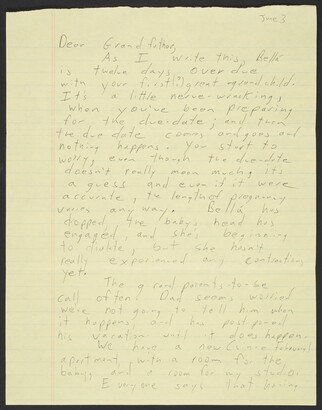 June 3
Dear Grandfather,
As I write this, Bella
is twelve days overdue
with your first great-grandchild.
It's a little nerve-wracking,
when you've been preparing
for the due date; and then
the due date comes and goes and
nothing happens. You start to
worry, even though the due-date
doesn't really mean much; its
a guess and even if it were
accurate, the length of pregnancy
varies any way. Bella has
dropped, the baby's head has
engaged, and she's beginning
to dialate, but she hasn't
really experienced any contractions
yet.
The grand parents-to-be
call often. Dad seems worried
were not going to tell him when
it happens, and has postponed
his vacation until it does happen.
We have a new
apartment, with a room for the
baby and a room for my studio.
Everyone says that having